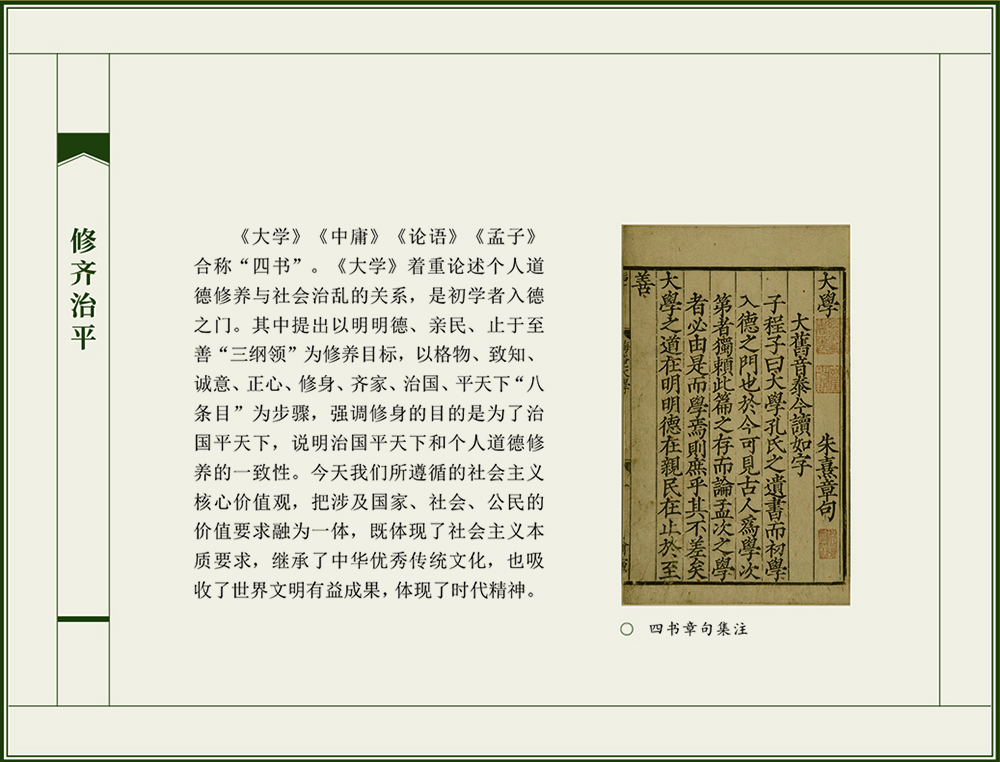 修齐治平
《大学》《中庸》《论语》《孟子》
合称“四书”。《大学》着重论述个人道
德修养与社会治乱的关系，是初学者入德
之门。其中提出以明明德、亲民、止于至
善“三纲领”为修养目标，以格物、致知、
诚意、正心、修身、齐家、治国、平天下“八
条目”为步骤，强调修身的目的是为了治
国平天下，说明治国平天下和个人道德修
养的一致性。今天我们所遵循的社会主义
核心价值观，把涉及国家、社会、公民的
价值要求融为一体，既体现了社会主义本
质要求，继承了中华优秀传统文化，也吸
收了世界文明有益成果，体现了时代精神。
大學
朱熹章句
大舊音泰今讀如字
子程子曰大學孔氏之遺書而初學
入德之門也於今可見古人爲學次
第者獨賴此篇之存而論孟次之學
者必由是而學焉則庶乎其不差矣
大學之道在明明德在親民在止於至
善
四书章句集注